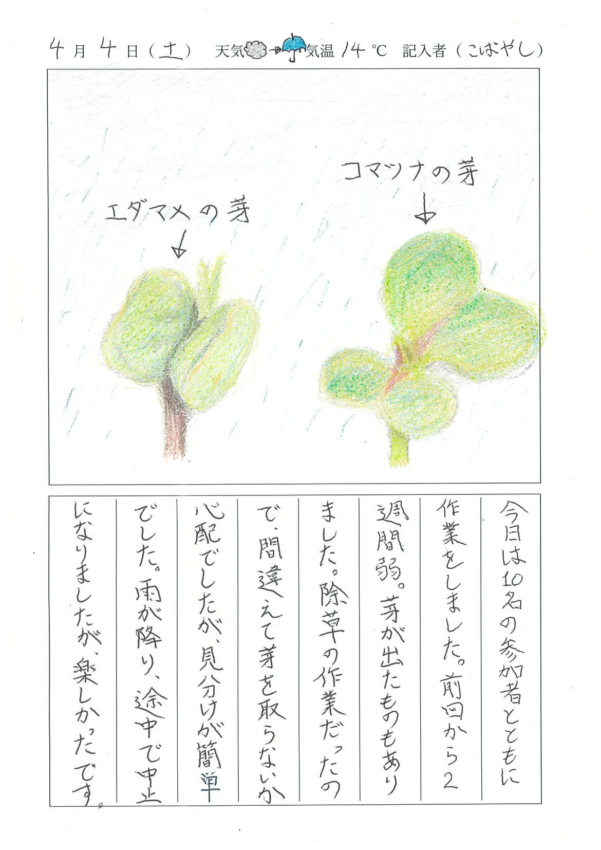 4月4日(土) 天気 気温14℃ 記入者(こばやし)
コマツナの芽
エダマメの芽
今日は10名の参加者とともに
作業をしました。前回から2
週間弱。芽が出たものもあり
ました。除草の作業だったの
で、間違えて芽を取らないか
心配でしたが、見分けが簡単
でした。雨が降り、途中で中止
になりましたが、楽しかったです。